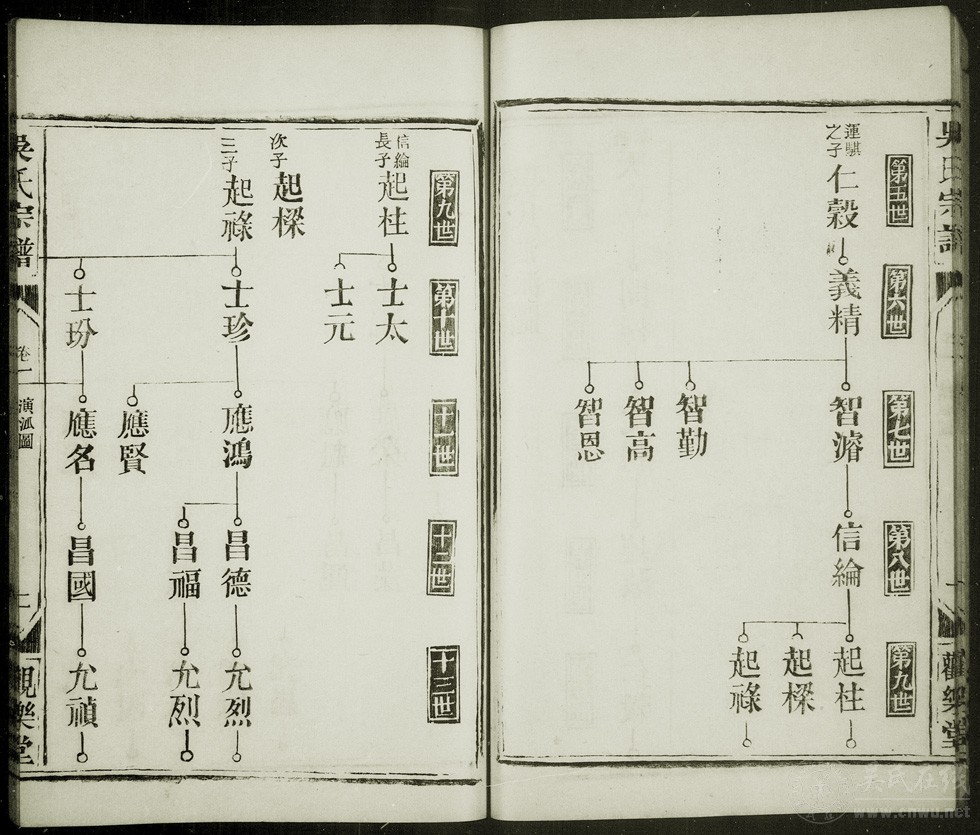 吳氏宗譜
觀樂堂
第五世
第六世
第七世
第八世
第九世
運騏之子
仁穀
義精
智濬
信綸
起柱
智勤
起樑
智高
起祿
智恩
第九世
第十世
十一世
十二世
十三世
信綸長子
起柱
士太
士元
次子
起樑
三子
起祿
士珍
應鴻
昌德
允烈
昌福
允烈
應賢
士玢
應名
昌國
允禎
吳氏宗譜
卷一
演派圖
二
觀樂堂
吴氏在线
www.cnwu.net